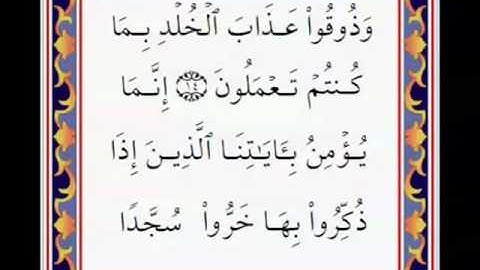 وَذُوقُوا۟ عَذَابَ ٱلْخُلْدِ بِمَا
كُنتُمْ تَعْمَلُونَ ١٤ إِنَّمَا
يُؤْمِنُ بِـَٔايَـٰتِنَا ٱلَّذِينَ إِذَا
ذُكِّرُوا۟ بِهَا خَرُّوا۟ سُجَّدًا